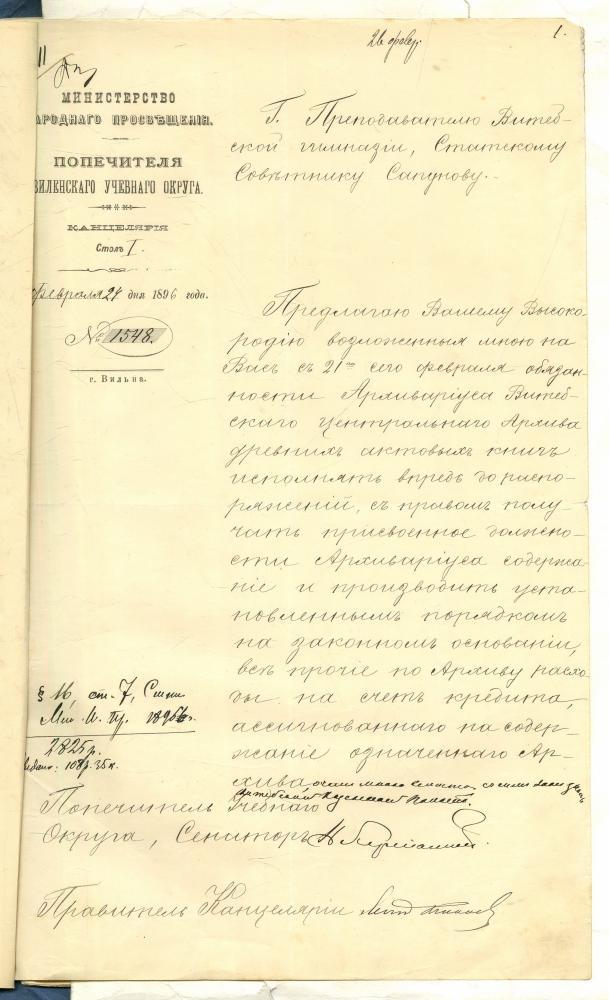 26 февр.
1.
11
МИНИСТЕРСТВО
АРОДНАГО ПРОСВѢЩЕНІЯ.
ПОПЕЧИТЕЛЯ
ВИЛЕНСКАГО УЧЕБНАГО ОКРУГА.
КАНЦЕЛЯРІЯ
Столъ I.
февраля 24 дня 1896 года.
№ 1548.
г. Вильна.
Г. Преподавателю Витеб-
ской гимназіи, Статскому
Совѣтнику Сапунову.
Предлагаю Вашему Высоко-
родію возложенныя мною на
Васъ съ 21го сего февраля обязан-
ности Архиваріуса Витеб-
скаго Центральнаго Архива
древнихъ актовыхъ книгъ
исполнять впредь до распо-
ряженій, съ правомъ полу-
чать присвоенное должно-
сти Архиваріуса содержа-
ніе и производить уста-
новленнымъ порядкомъ
на законномъ основаніи,
всѣ прочіе по Архиву расхо-
ды на счетъ кредита,
ассигнованнаго на содер-
жаніе означеннаго Ар-
хива,
§ 16, ст. 7,
1896 г.
2825 р.
108 р. 35 к.
Попечитель Учебнаго
Округа, Сенаторъ Н
Правитель Канцеляріи